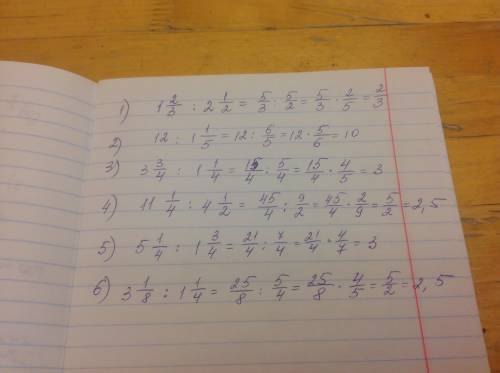 1) 1 2/3 : 2 1/2 = 5/3 : 5/2 = 5/3 · 2/5 = 2/3
2) 12 : 1 1/5 = 12 : 6/5 = 12 · 5/6 = 10
3) 3 3/4 : 1 1/4 = 15/4 : 5/4 = 15/4 · 4/5 = 3
4) 11 1/4 : 4 1/2 = 45/4 : 9/2 = 45/4 · 2/9 = 5/2 = 2,5
5) 5 1/4 : 1 3/4 = 21/4 : 7/4 = 21/4 · 4/7 = 3
6) 3 1/8 : 1 1/4 = 25/8 : 5/4 = 25/8 · 4/5 = 5/2 = 2,5